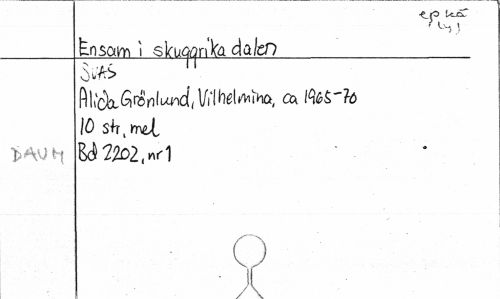 ep kä
lyr
Ensam i skuggrika dalen
SVAS
Alida Grönlund, Vilhelmina, ca 1965-70
10 str, mel
DAUM Bd 2202, nr 1